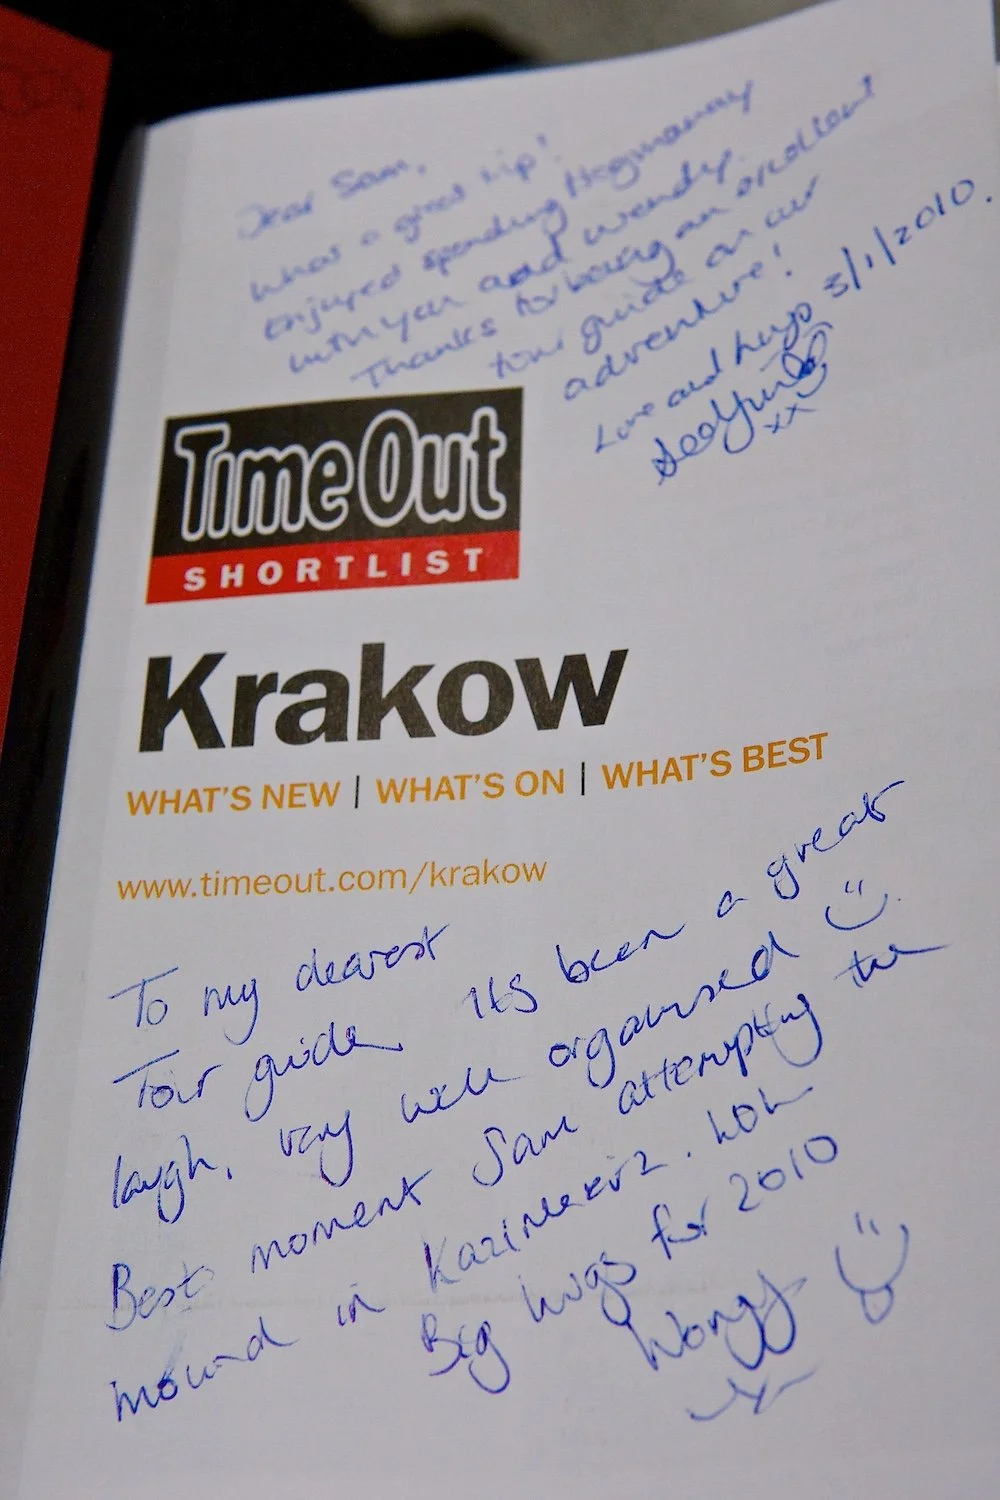 Dear Sam,
What a great trip!
Enjoyed spending Hogmanay
with you and Wendy.
Thanks for being an excellent
tour guide on our
adventure!
Love and hugs 3/1/2010.
xx
Time Out
SHORTLIST
Krakow
WHAT'S NEW | WHAT'S ON | WHAT'S BEST
www.timeout.com/krakow
To my dearest
Tour guide its been a great
laugh, very well organised
Best moment Sam attempting the
mound in LOL
Big hugs for 2010